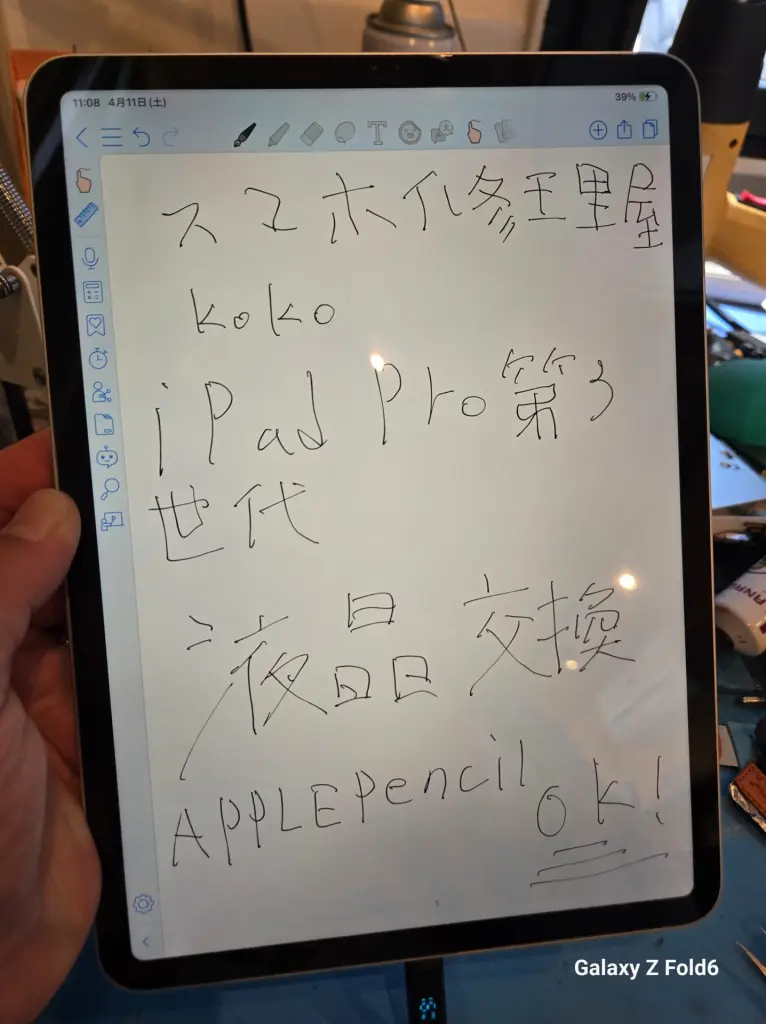 11:08 4月11日(土) 39%
スマホ修理屋
koko
iPad Pro第3
世代
液晶交換
APPLEPencil
ok!
1
Galaxy Z Fold6